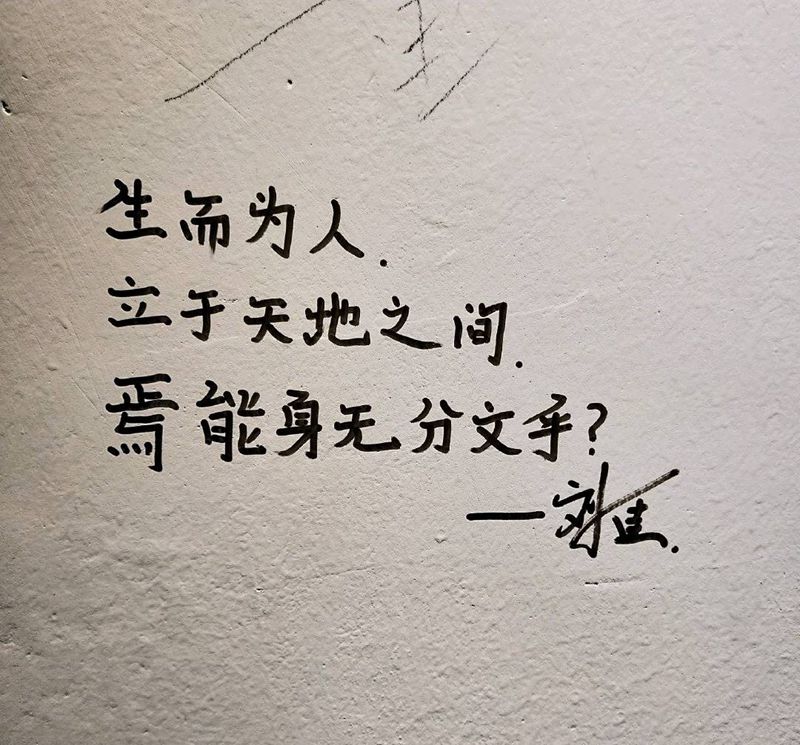 生而为人.
立于天地之间.
焉能身无分文乎?
—刘